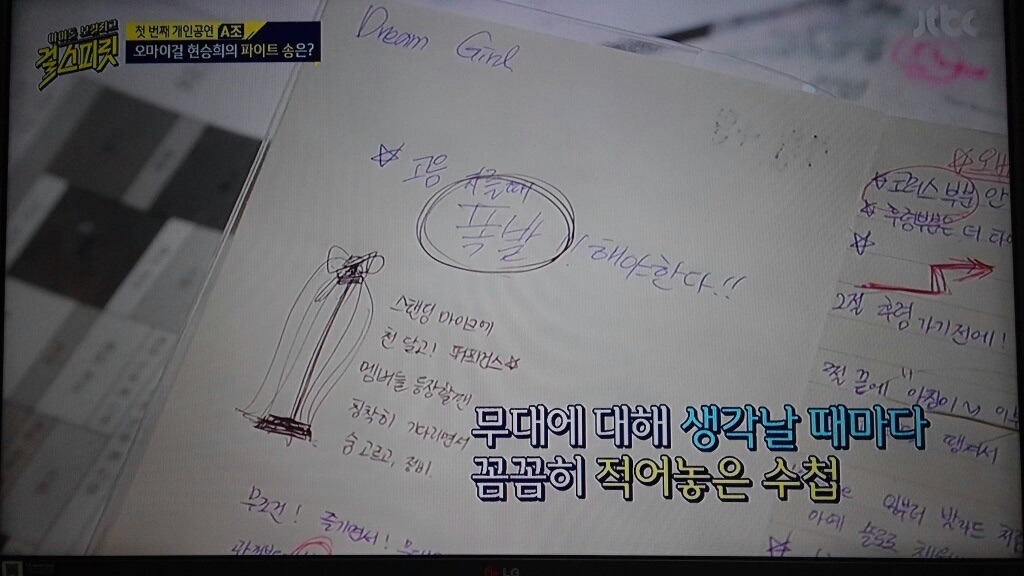 걸스피릿
첫 번째 개인공연 A조
오마이걸 현승희의 파이트 송은?
jtbc
Dream Girl
☆ 고음 지를때
폭발! 해야한다!!
스탠딩 마이크에
천 달고! 퍼포먼스☆
멤버들 등장할땐
침착히 기다리면서
숨 고르고, 준비
무조건! 즐기면서!
☆ 코러스 부분 안
☆ 후렴부분은 더
☆
2절 후렴 가기전에!
찔 끝에
땡겨서
발라드
아예 솔로로
무대에 대해 생각날 때마다
꼼꼼히 적어놓은 수첩
LG